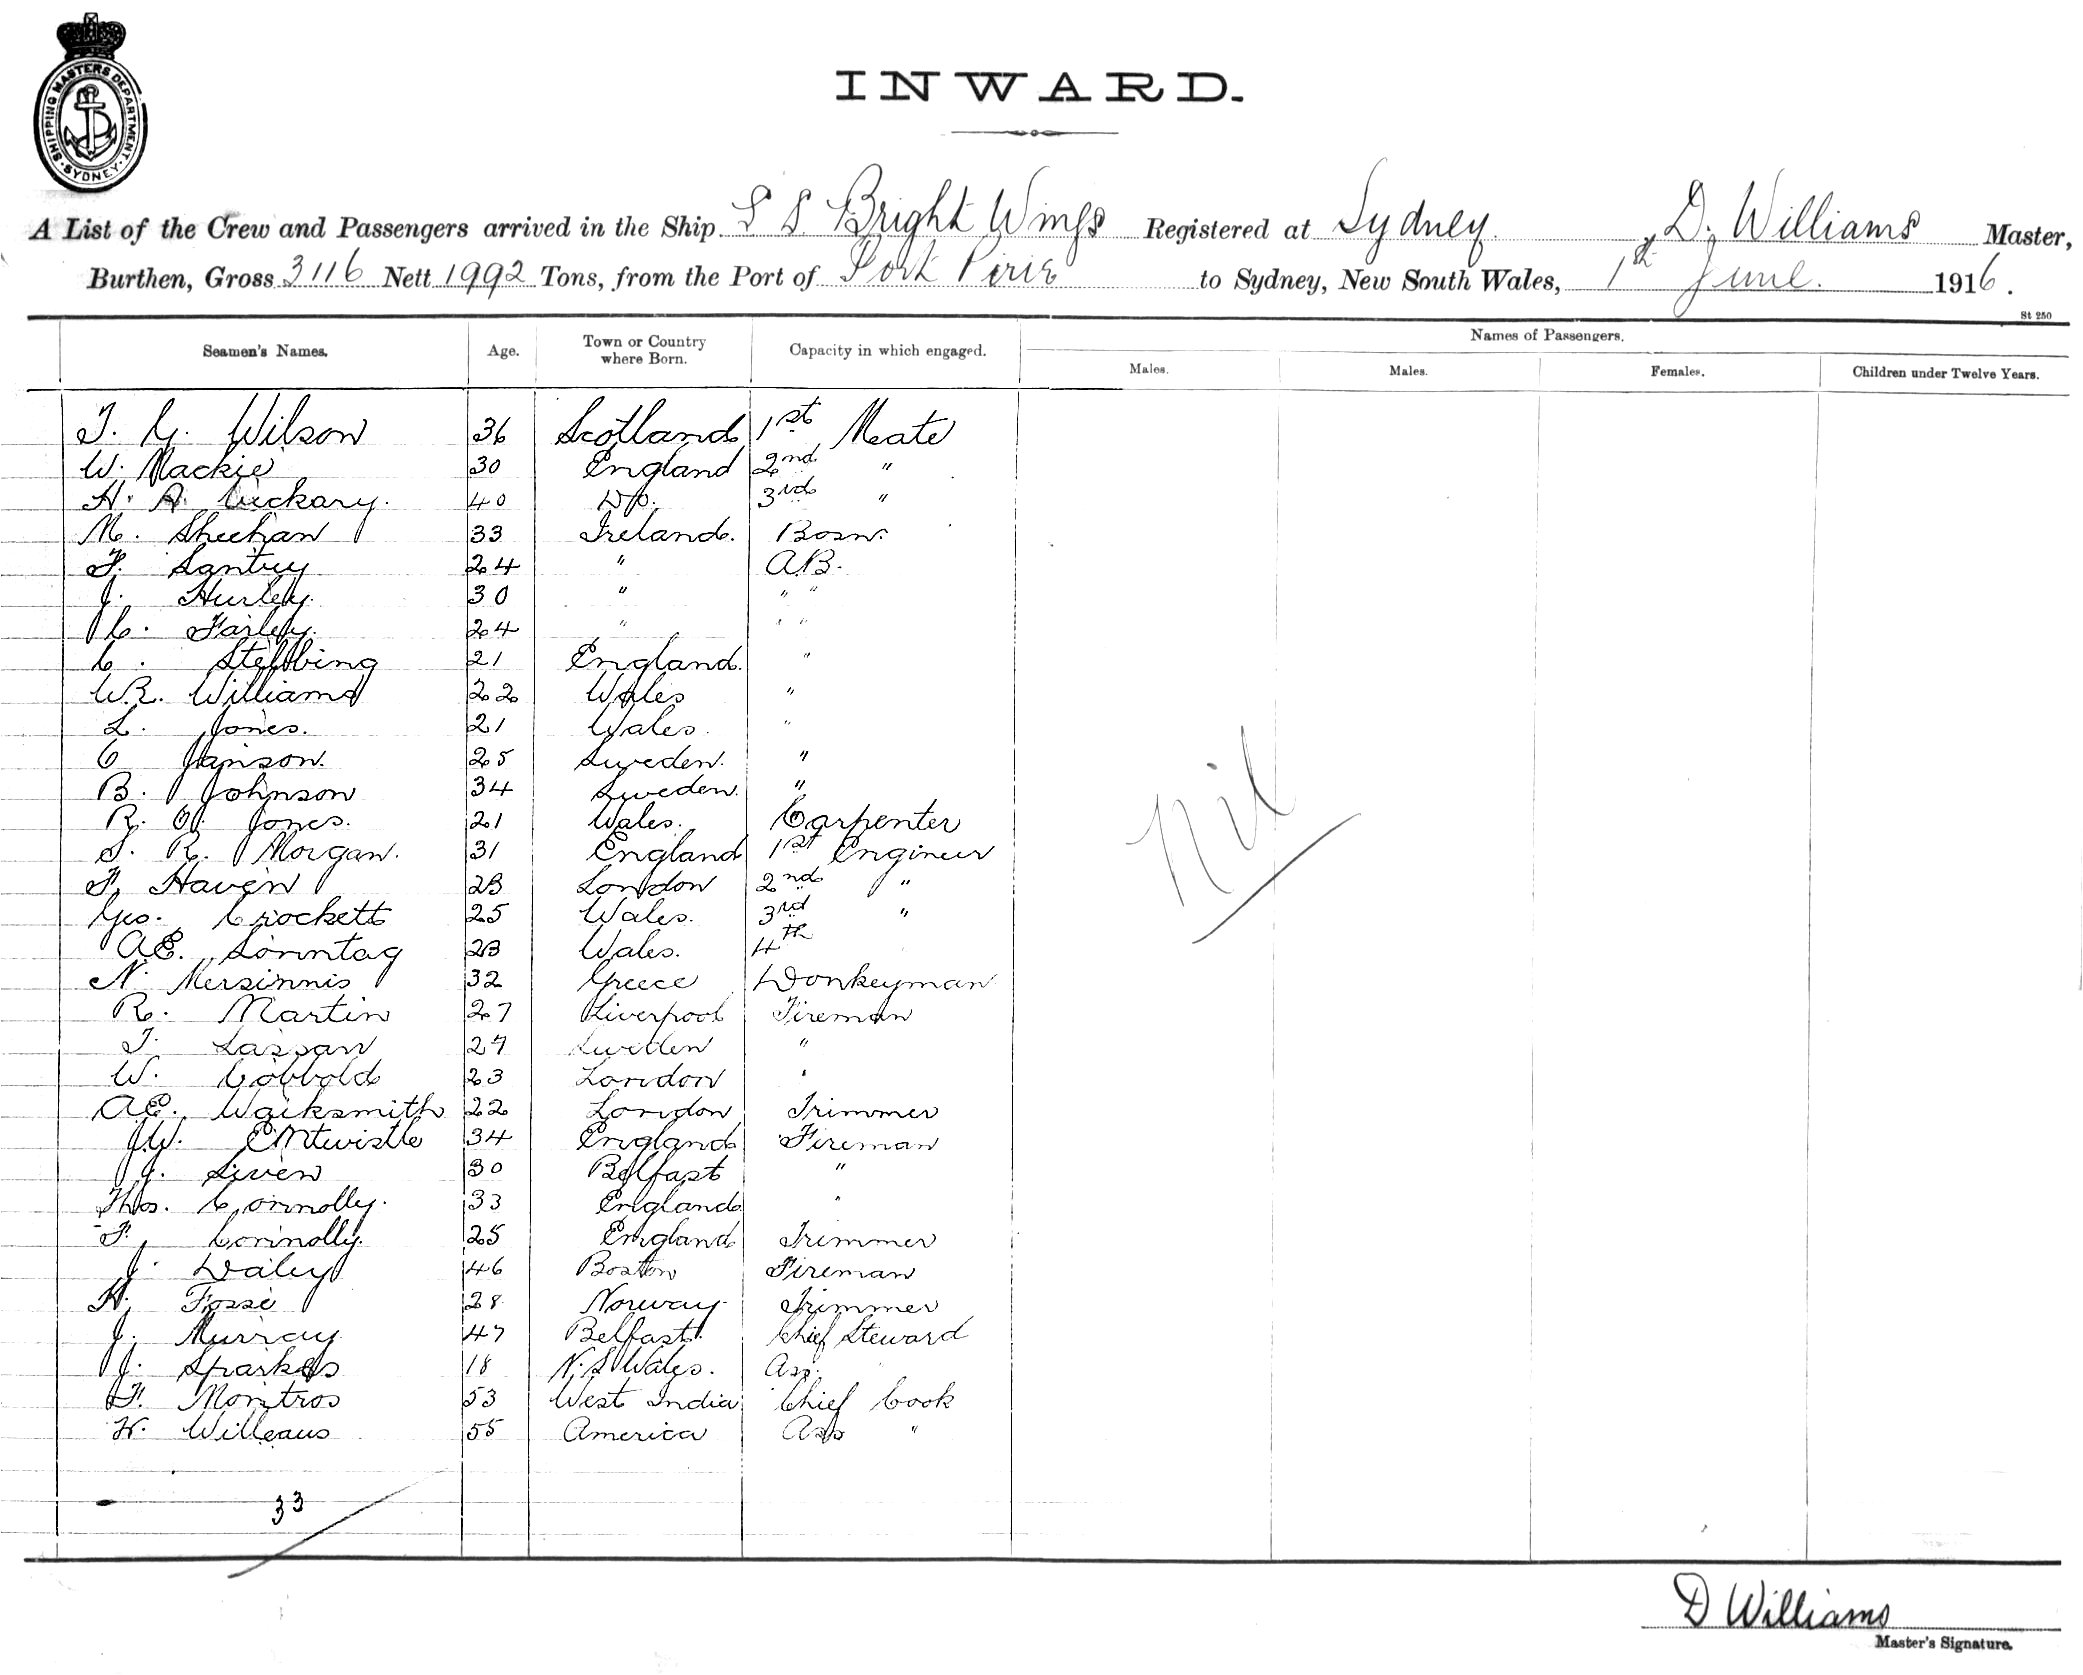 SHIPPING MASTERS DEPARTMENT · SYDNEY ·
INWARD.
A List of the Crew and Passengers arrived in the Ship S S Bright Wings Registered at Sydney D. Williams Master,
Burthen, Gross 3116 Nett 1992 Tons, from the Port of Port Pirie to Sydney, New South Wales, 1st June 1916.
St 250
Seamen's Names. Age. Town or Country where Born. Capacity in which engaged. Names of Passengers.
Males. Males. Females. Children under Twelve Years.
T. G. Wilson 36 Scotland 1st Mate
W. Mackie 30 England 2nd "
H. A. 40 Do. 3rd "
M. Sheehan 33 Ireland. Bosn.
J. Santry 24 " A.B.
J. Hurley. 30 " " "
C. Farley. 24 " " "
C. Stebbing 21 England. "
W.R. Williams 22 Wales "
L. Jones. 21 Wales. "
C Janson. 25 Sweden. "
B. Johnson 34 Sweden. "
R. O. Jones. 21 Wales. Carpenter
S. R. Morgan. 31 England 1st Engineer
F. Haven 23 London 2nd "
Geo. Crockett 25 Wales. 3rd "
A.E. Sonntag 23 Wales. 4th
N. Mersinnis 32 Greece Donkeyman
R. Martin 27 Liverpool Fireman
T. Lassan 27 Sweden "
W. Cobbold 23 London "
A.E. Waiksmith 22 London Trimmer
J.W. Entwistle 34 England Fireman
J. Siven 30 Belfast "
Thos. Connolly. 33 England "
F. Connolly. 25 England Trimmer
J. Daley 46 Boston Fireman
H. Fosse 28 Norway Trimmer
J. Murray 47 Belfast. Chief Steward
J. Sparkes 18 N.S Wales. Ass.
F. Montros 53 West India Chief Cook
H. Willeaus 55 America Ass "
Nil
33
D Williams
Master's Signature.